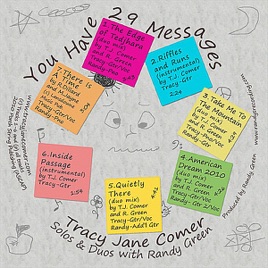 You Have 29 Messages
1.The Edge
of Tedjnard
(duo mix)
by T.J. Comer
and R. Green
Tracy-Gtr/Voc
Randy-Gtr
2.Riffles
and Runs
(instrumental)
by T.J. Comer
Tracy-Gtr
2:24
3.Take Me To
The Mountain
(duo mix)
by T.J. Comer
and R. Green
Tracy-Gtr/Voc
Randy-Gtr
4.American
Dream 2010
(duo mix)
by T.J. Comer
and R. Green
Tracy-Gtr/Voc
Randy-Gtr
5.Quietly
There
(duo mix)
by T.J. Comer
and R. Green
Tracy-Gtr/Voc
Randy-Add'l Gtr
6.Inside
Passage
(instrumental)
by T.J. Comer
Tracy-Gtr
1:59
7.There Is
A Time
by R. Dillard
Tracy-Gtr/Voc
Tracy Jane Comer
Solos & Duos with Randy Green
Produced by Randy Green